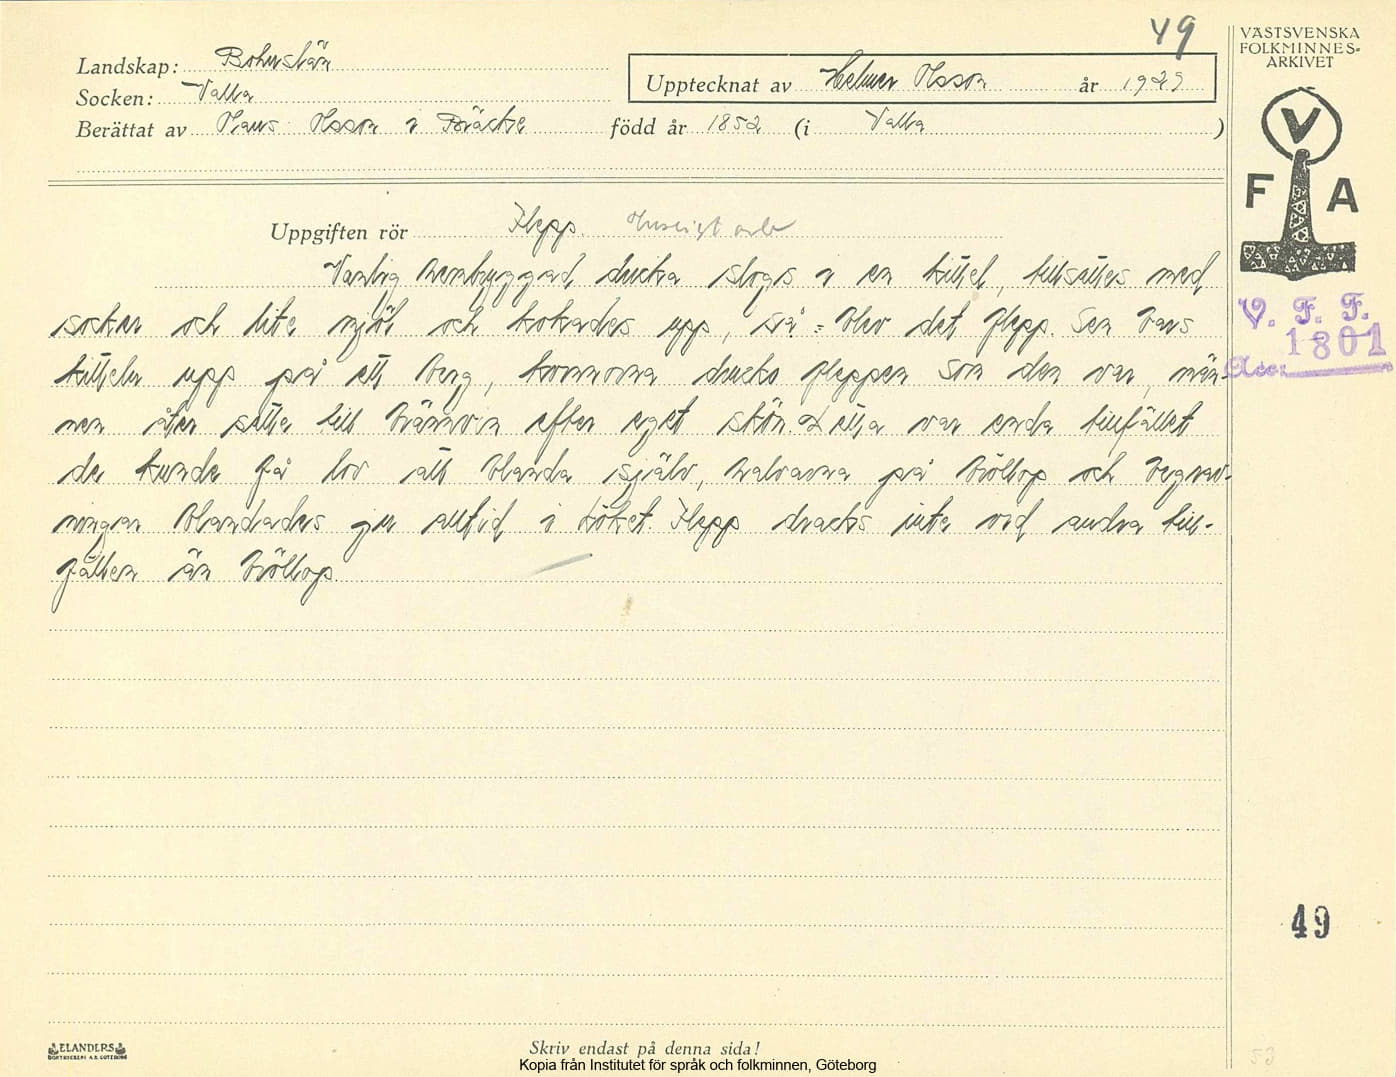 49
VÄSTSVENSKA
FOLKMINNES-
ARKIVET
Landskap: Bohuslän
Upptecknat av Helmer Olsson år 1929
Socken: Valla
Berättat av Hans Olsson i Bräcke född år 1852 (i Valla )
V
F A
Uppgiften rör Flepp.
Vanlig hembryggad dricka slogs i en kittel, tillsattes med
socker och lite mjöl och kokades upp, så blev det flepp. Sen bars
kitteln upp på ett berg, kvinnorna drucko fleppen som den var, män-
nen åter satte till brännvin efter eget skön. Detta var enda tillfället
de kunde få lov att blanda själv, halvorna på bröllop och begrav-
ningar blandades ju alltid i köket. Flepp dracks inte vid andra till-
fällen än bröllop.
V. F. F.
1801
Acc:
49
ELANDERS
BOKTRYCKERI A.B. GÖTEBORG
Skriv endast på denna sida!
Kopia från Institutet för språk och folkminnen, Göteborg
53